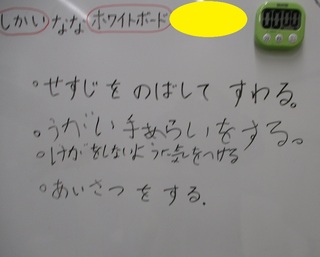 しかい なな ホワイトボード
00:00
。せすじをのばしてすわる。
。うがい手あらいをする。
。けがをしないよう気をつける
。あいさつをする.